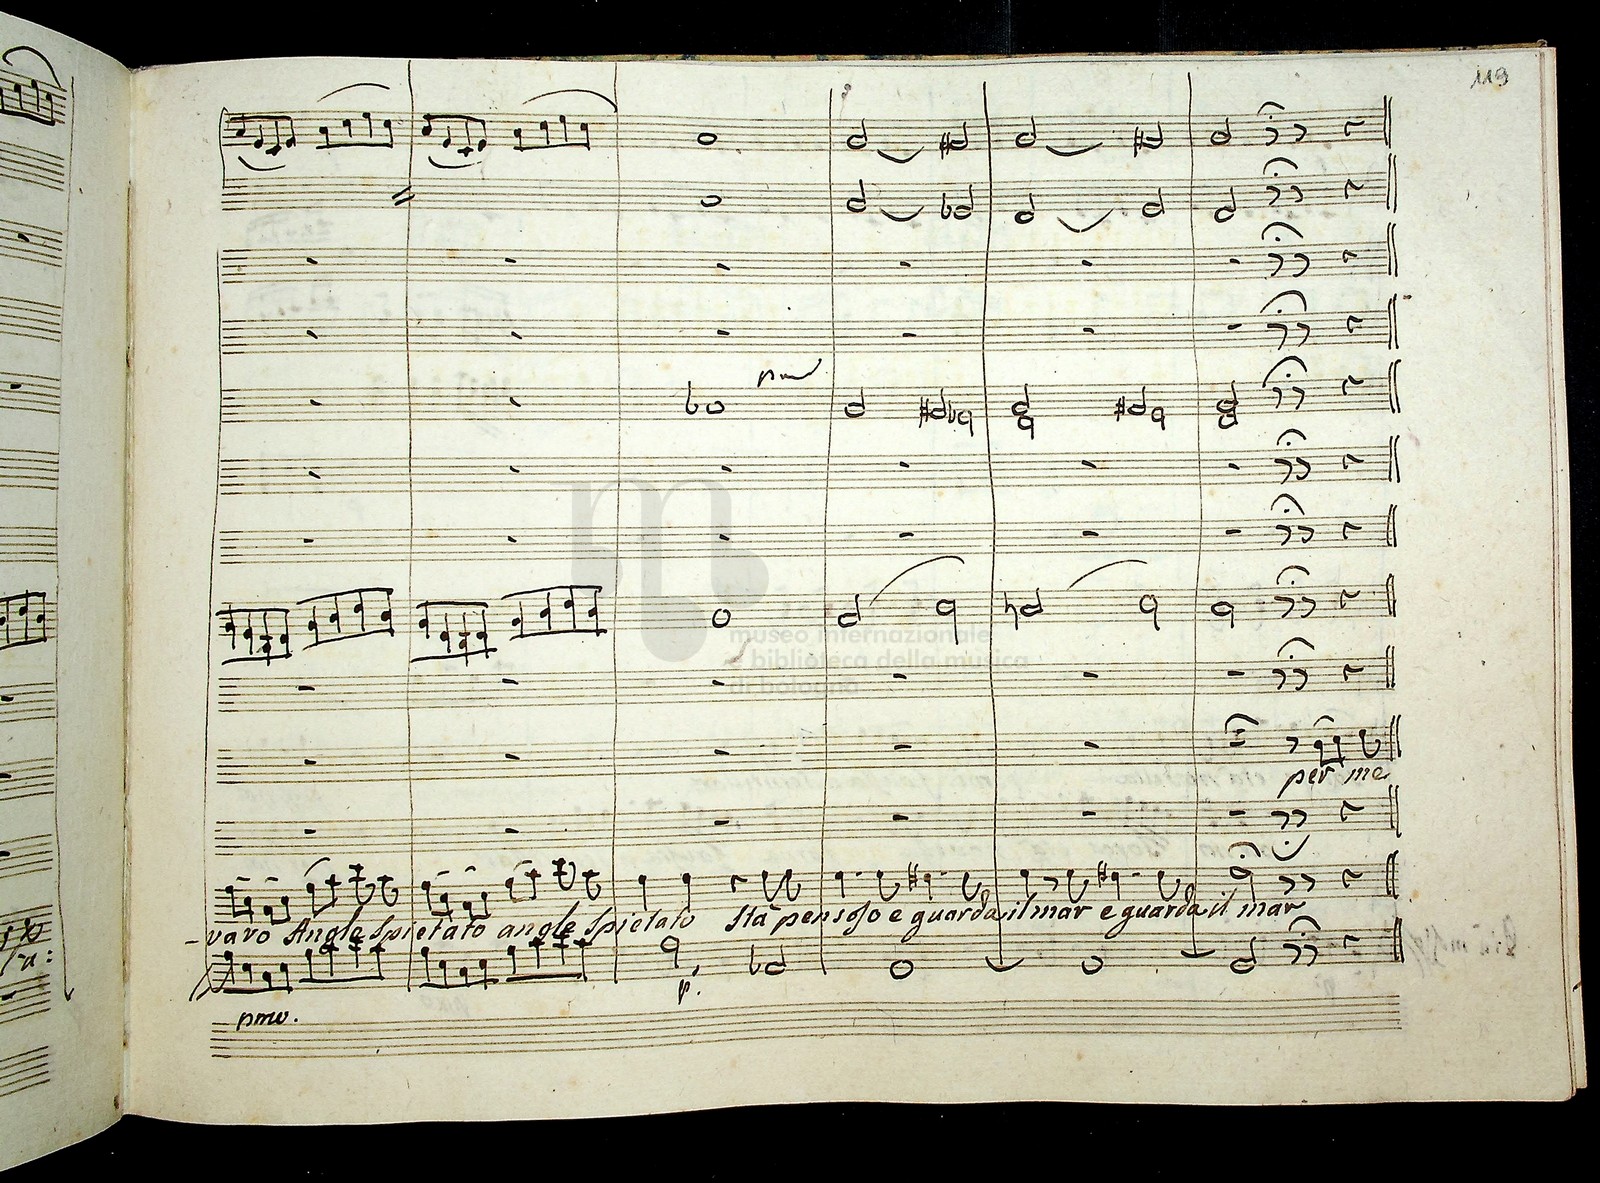 119
pmo
museo internazionale
e biblioteca della musica
di bologna
per me
-varo Angle Spietato angle Spietato Stà pensoso e guarda il mar e guarda il mar
p.
pmo.